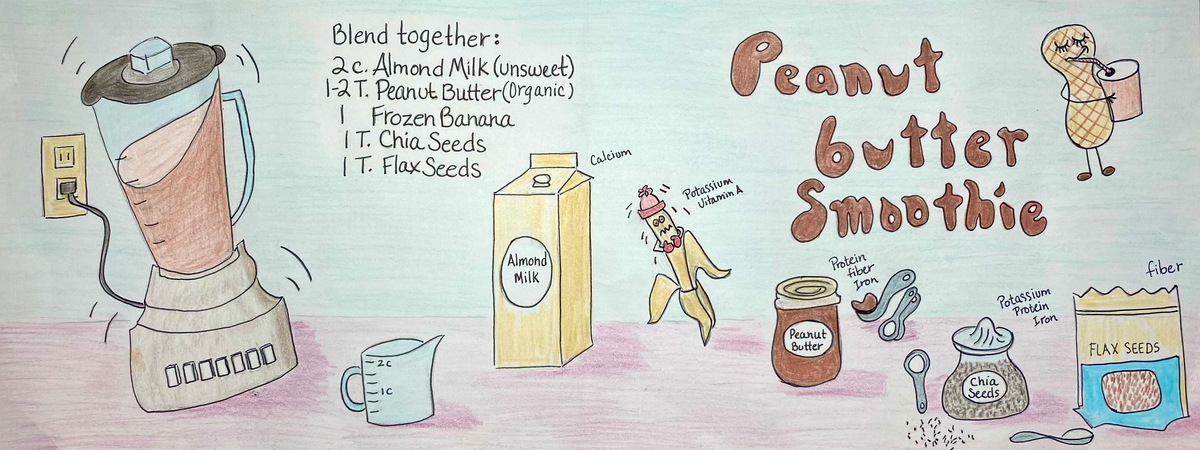 Blend together:
2 c. Almond Milk (unsweet)
1-2 T. Peanut Butter (Organic)
1 Frozen Banana
1 T. Chia Seeds
1 T. Flax Seeds
Peanut
butter
Smoothie
Calcium
Almond
Milk
Potassium
Vitamin A
2C
1C
Protein
fiber
Iron
Peanut
Butter
Potassium
Protein
Iron
Chia
Seeds
fiber
FLAX SEEDS